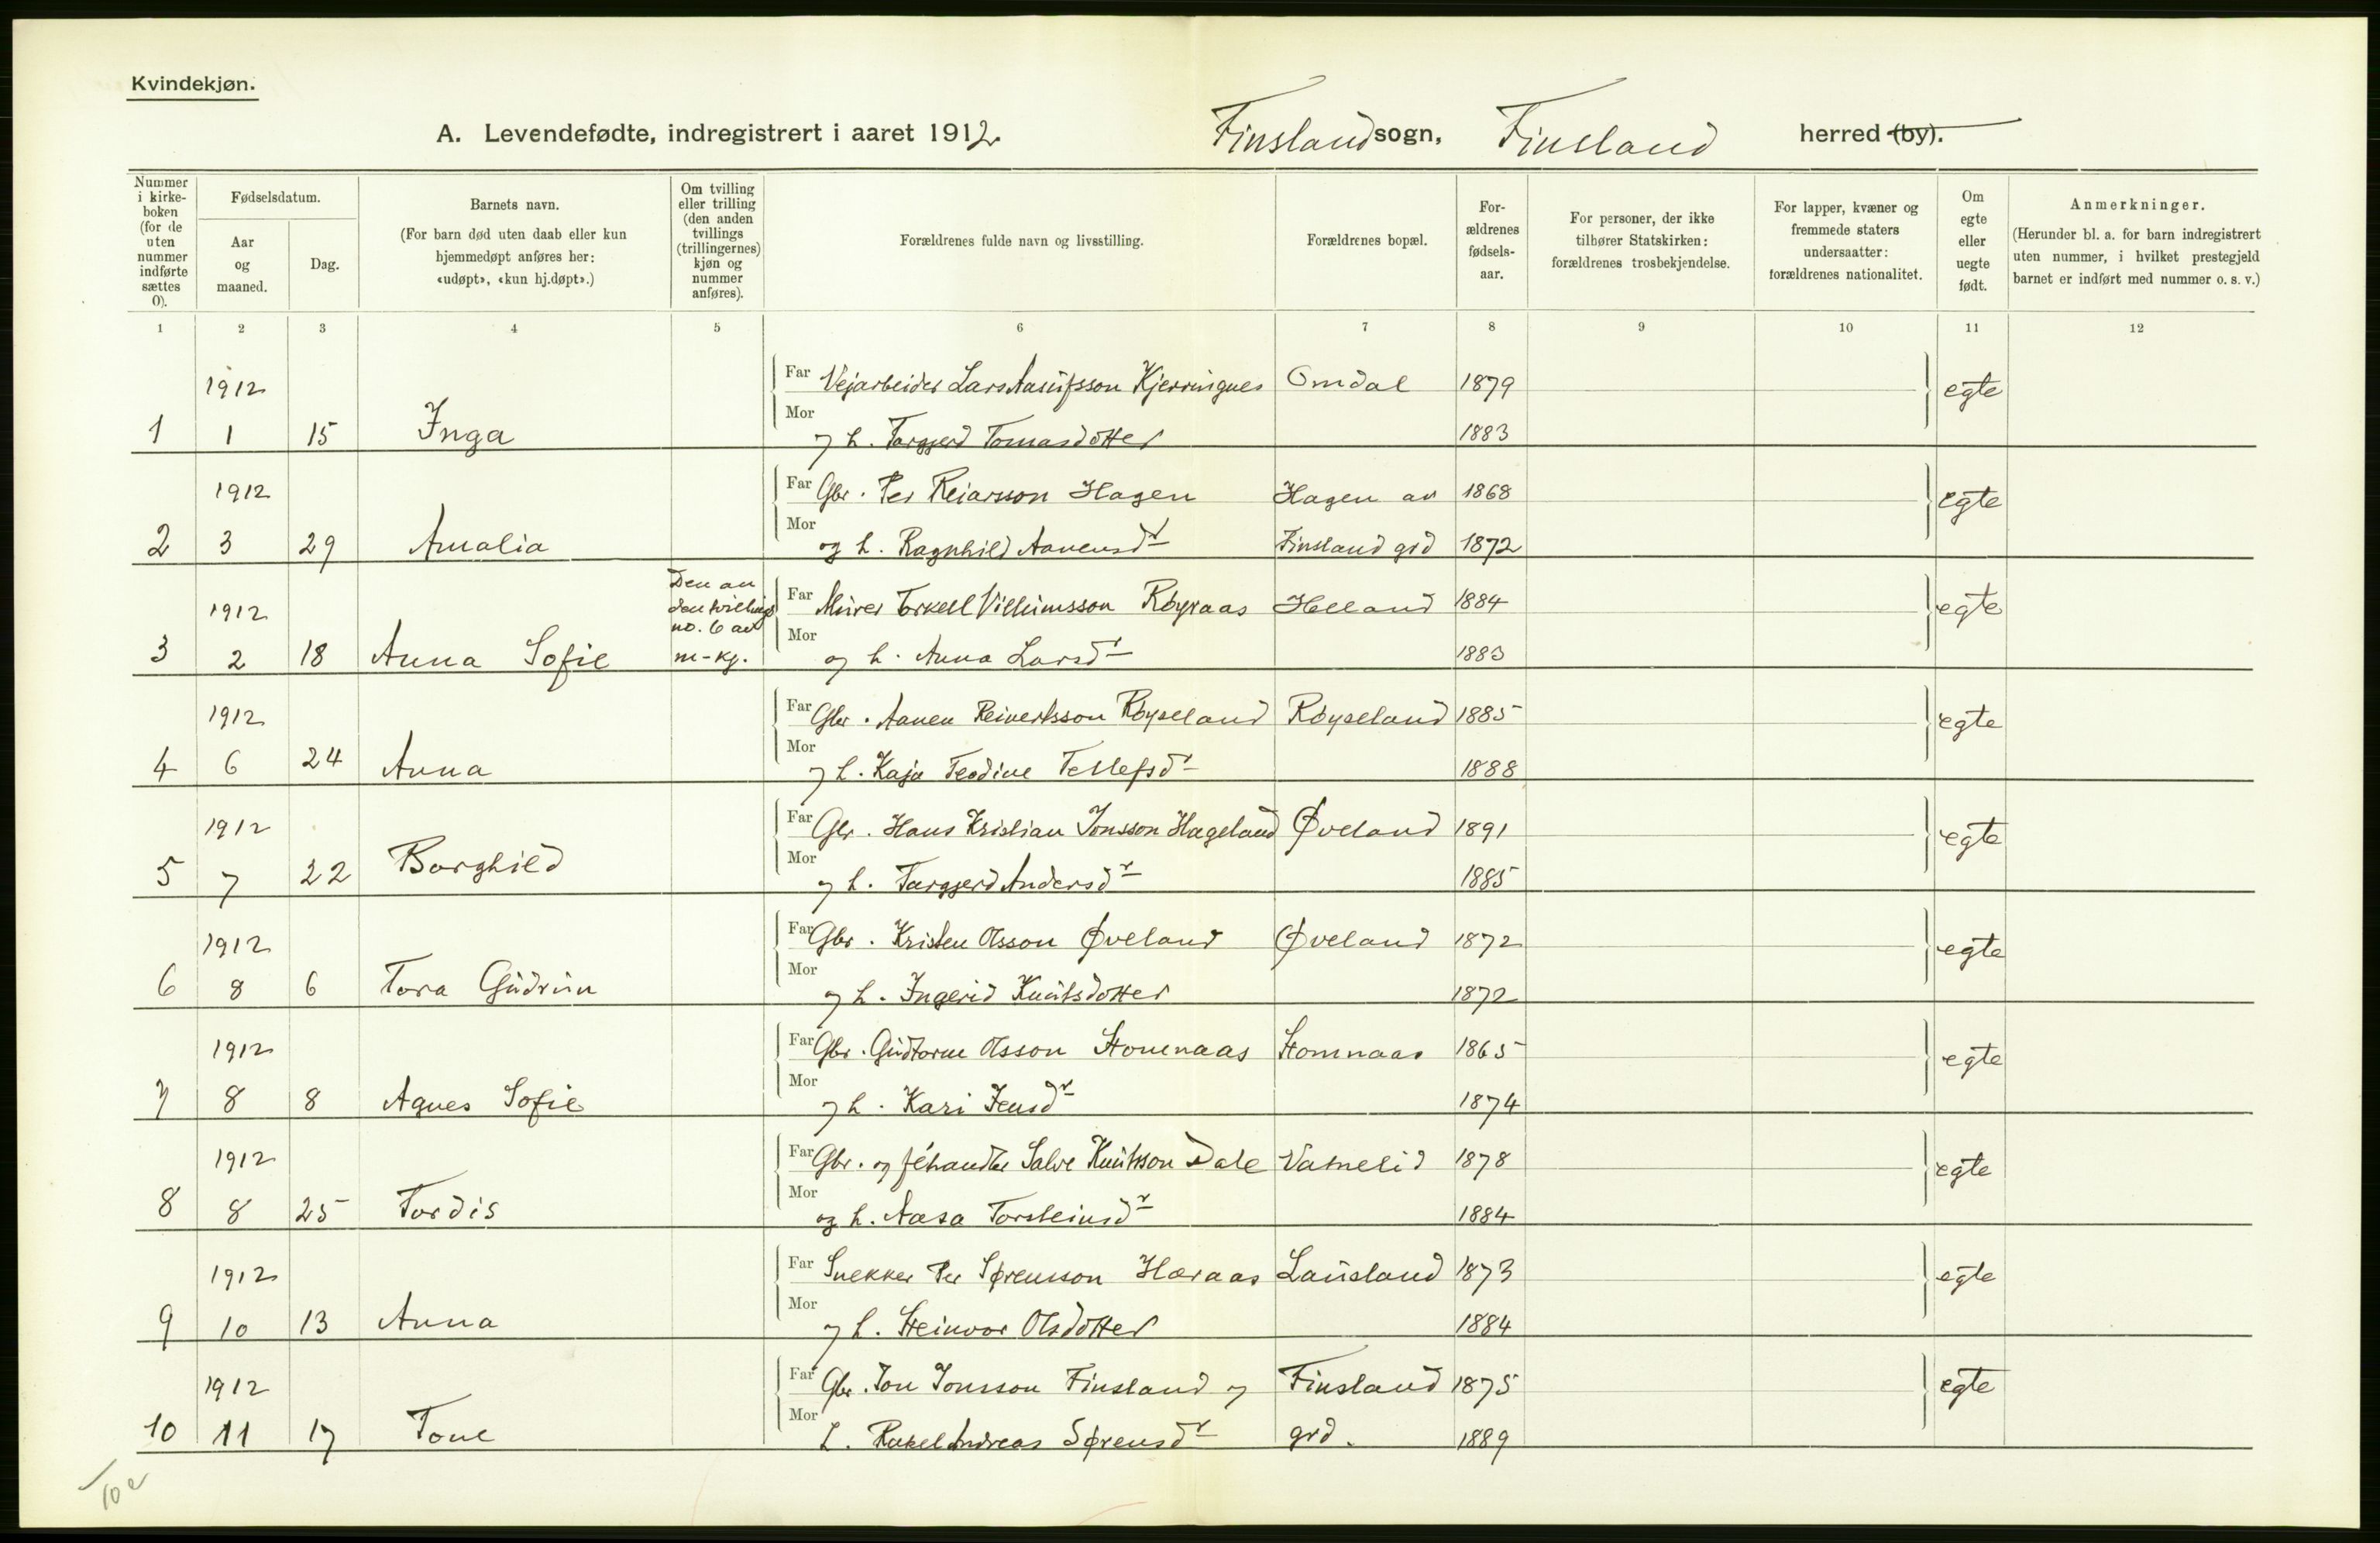 Kvindekjøn.
A. Levendefødte, indregistrert i aaret 1912 Finsland sogn, Finsland herred (by).
Nummer i kirke-boken (for de uten nummer indførte sættes 0).
Fødselsdatum.
Aar og maaned.
Dag.
Barnets navn.
(For barn død uten daab eller kun hjemmedøpt anføres her: «udøpt», «kun hj.døpt».)
Om tvilling eller trilling (den anden tvillings (trillingernes) kjøn og nummer anføres).
Forældrenes fulde navn og livsstilling.
Forældrenes bopæl.
For-ældrenes fødsels-aar.
For personer, der ikke tilhører Statskirken: forældrenes trosbekjendelse.
For lapper, kvæner og fremmede staters undersaatter: forældrenes nationalitet.
Om egte eller uegte født.
Anmerkninger.
(Herunder bl. a. for barn indregistrert uten nummer, i hvilket prestegjeld barnet er indført med nummer o. s. v.)
1 2 3 4 5 6 7 8 9 10 11 12
1912 Far Vejarbeider Lars Aasulfsson Kjerringnes Omdal 1879 egte
1 1 15 Inga Mor og h. Torgjerd Tomasdotter 1883
1912 Far Gbr. Per Reiarsson Hagen Hagen av 1868 egte
2 3 29 Amalia Mor og h. Ragnhild Aanensdr Finsland grd 1872
Den an
1912 den tvillings Far Murer Torkell Villumsson Röyraas Helland 1884 egte
no. 6 av Mor
3 2 18 Anna Sofie m-kj. og h. Anna Larsdr 1883
1912 Far Gbr. Aanen Reinertsson Röyseland Röyseland 1885 egte
4 6 24 Anna Mor og h. Kaja Teodine Tellefsdr 1888
1912 Far Gbr. Hans Kristian Jonsson Hageland Øveland 1891 egte
5 7 22 Borghild Mor og h. Torgjerd Andersdr 1885
1912 Far Gbr. Kristen Olsson Øveland Øveland 1872 egte
6 8 6 Tora Gudrun Mor og h. Ingerid Knutsdotter 1872
1912 Far Gbr. Gudtorm Olsson Stomnaas Stomnaas 1865 egte
7 8 8 Agnes Sofie Mor og h. Kari Jensdr 1874
1912 Far Gbr. og féhandler Salve Knutsson Dale Vatnelid 1878 egte
8 8 25 Tordis Mor og h. Aasa Torsteinsdr 1884
1912 Far Snekker Per Sørensson Haraas Lausland 1873 egte
9 10 13 Anna Mor og h. Steinvor Olsdotter 1884
1912 Far Gbr. Jon Jonsson Finsland og Finsland 1875 egte
10 11 17 Tone Mor h. Rakel Andreas Sørensdr grd. 1889
10 e